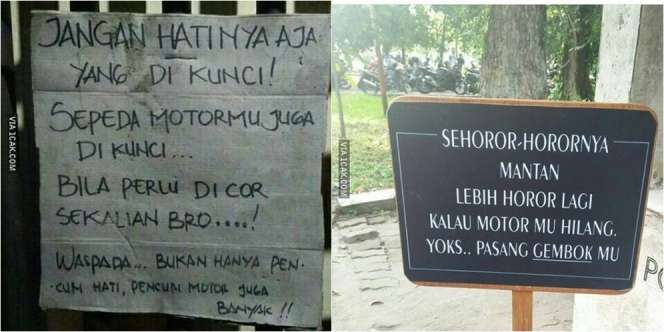 JANGAN HATINYA AJA
YANG DI KUNCI!
SEPEDA MOTORMU JUGA
DI KUNCI...
BILA PERLU DI COR
SEKALIAN BRO....!
WASPADA... BUKAN HANYA PEN-
CURI HATI, PENCURI MOTOR JUGA
BANYAK !!
VIA 1CAK.COM
VIA 1CAK.COM
SEHOROR-HORORNYA
MANTAN
LEBIH HOROR LAGI
KALAU MOTOR MU HILANG.
YOKS.. PASANG GEMBOK MU